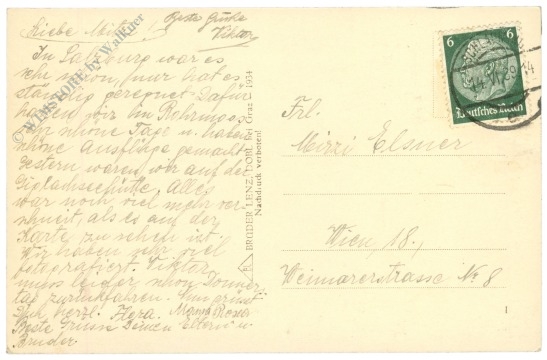 Liebe Mitzi,
Beste Grüße
Viktor
In Salzburg war es
sehr schön, nur hat es
ständig geregnet. Dafür
haben wir in
schöne Tage u. haben
schöne Ausflüge gemacht.
Gestern waren wir auf der
Alles
war noch viel mehr ver-
schneit, als es auf der
Karte zu sehen ist.
Wir haben sehr viel
fotografiert. Viktor
muss leider schon Donners-
tag zurückfahren. Nun grüsst
Dich herzl. Hera.
Beste Grüsse Deinen Eltern u.
Bruder.
© WIMSTORE by Walkner
BRÜDER LENZ, DOBL bei Graz 1934
Nachdruck verboten!
6 6
Deutsches Reich
Frl.
Mizzi Elsner
Wien, 18.,
Weimarerstrasse № 8
1